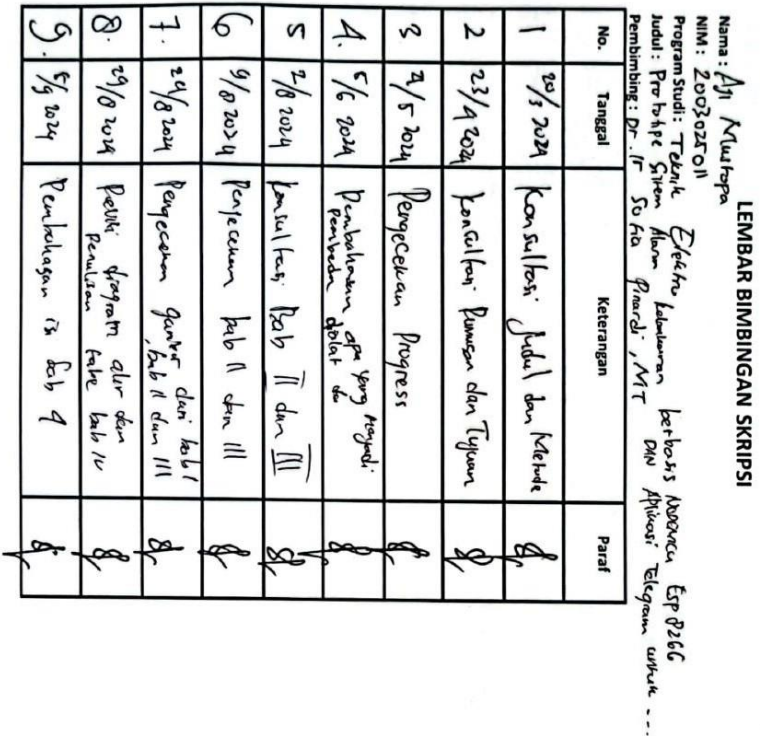 LEMBAR BIMBINGAN SKRIPSI
Nama : Aji Mustopa
NIM : 2003025011
Program Studi : Teknik Elektro
Judul : Prototipe Sistem Alarm kebakaran berbasis NODEMCU Esp 8266 DAN Aplikasi Telegram untuk ...
Pembimbing : Dr. Ir Sofia Pinardi, MT
No. Tanggal Keterangan Paraf
1 20/3 2024 Konsultasi Judul dan Metode
2 23/4 2024 Konsultasi Rumusan dan Tujuan
3 2/5 2024 Pengecekan Progress
4. 5/6 2024 Pembahasan apa yang menjadi
Pembeda
5 2/8 2024 Konsultasi Bab II dan III
6 9/8 2024 Pengecekan bab II dan III
7. 24/8 2024 Pengecekan gambar dari bab I
, bab II dan III
8. 29/8 2024 diagram alir dan
Penulisan bab IV
9. 5/9 2024 Pembahasan isi bab 4